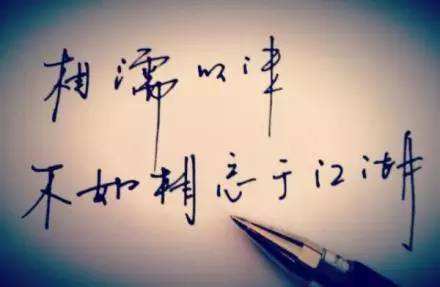 相濡以津
不如精忘于江湖